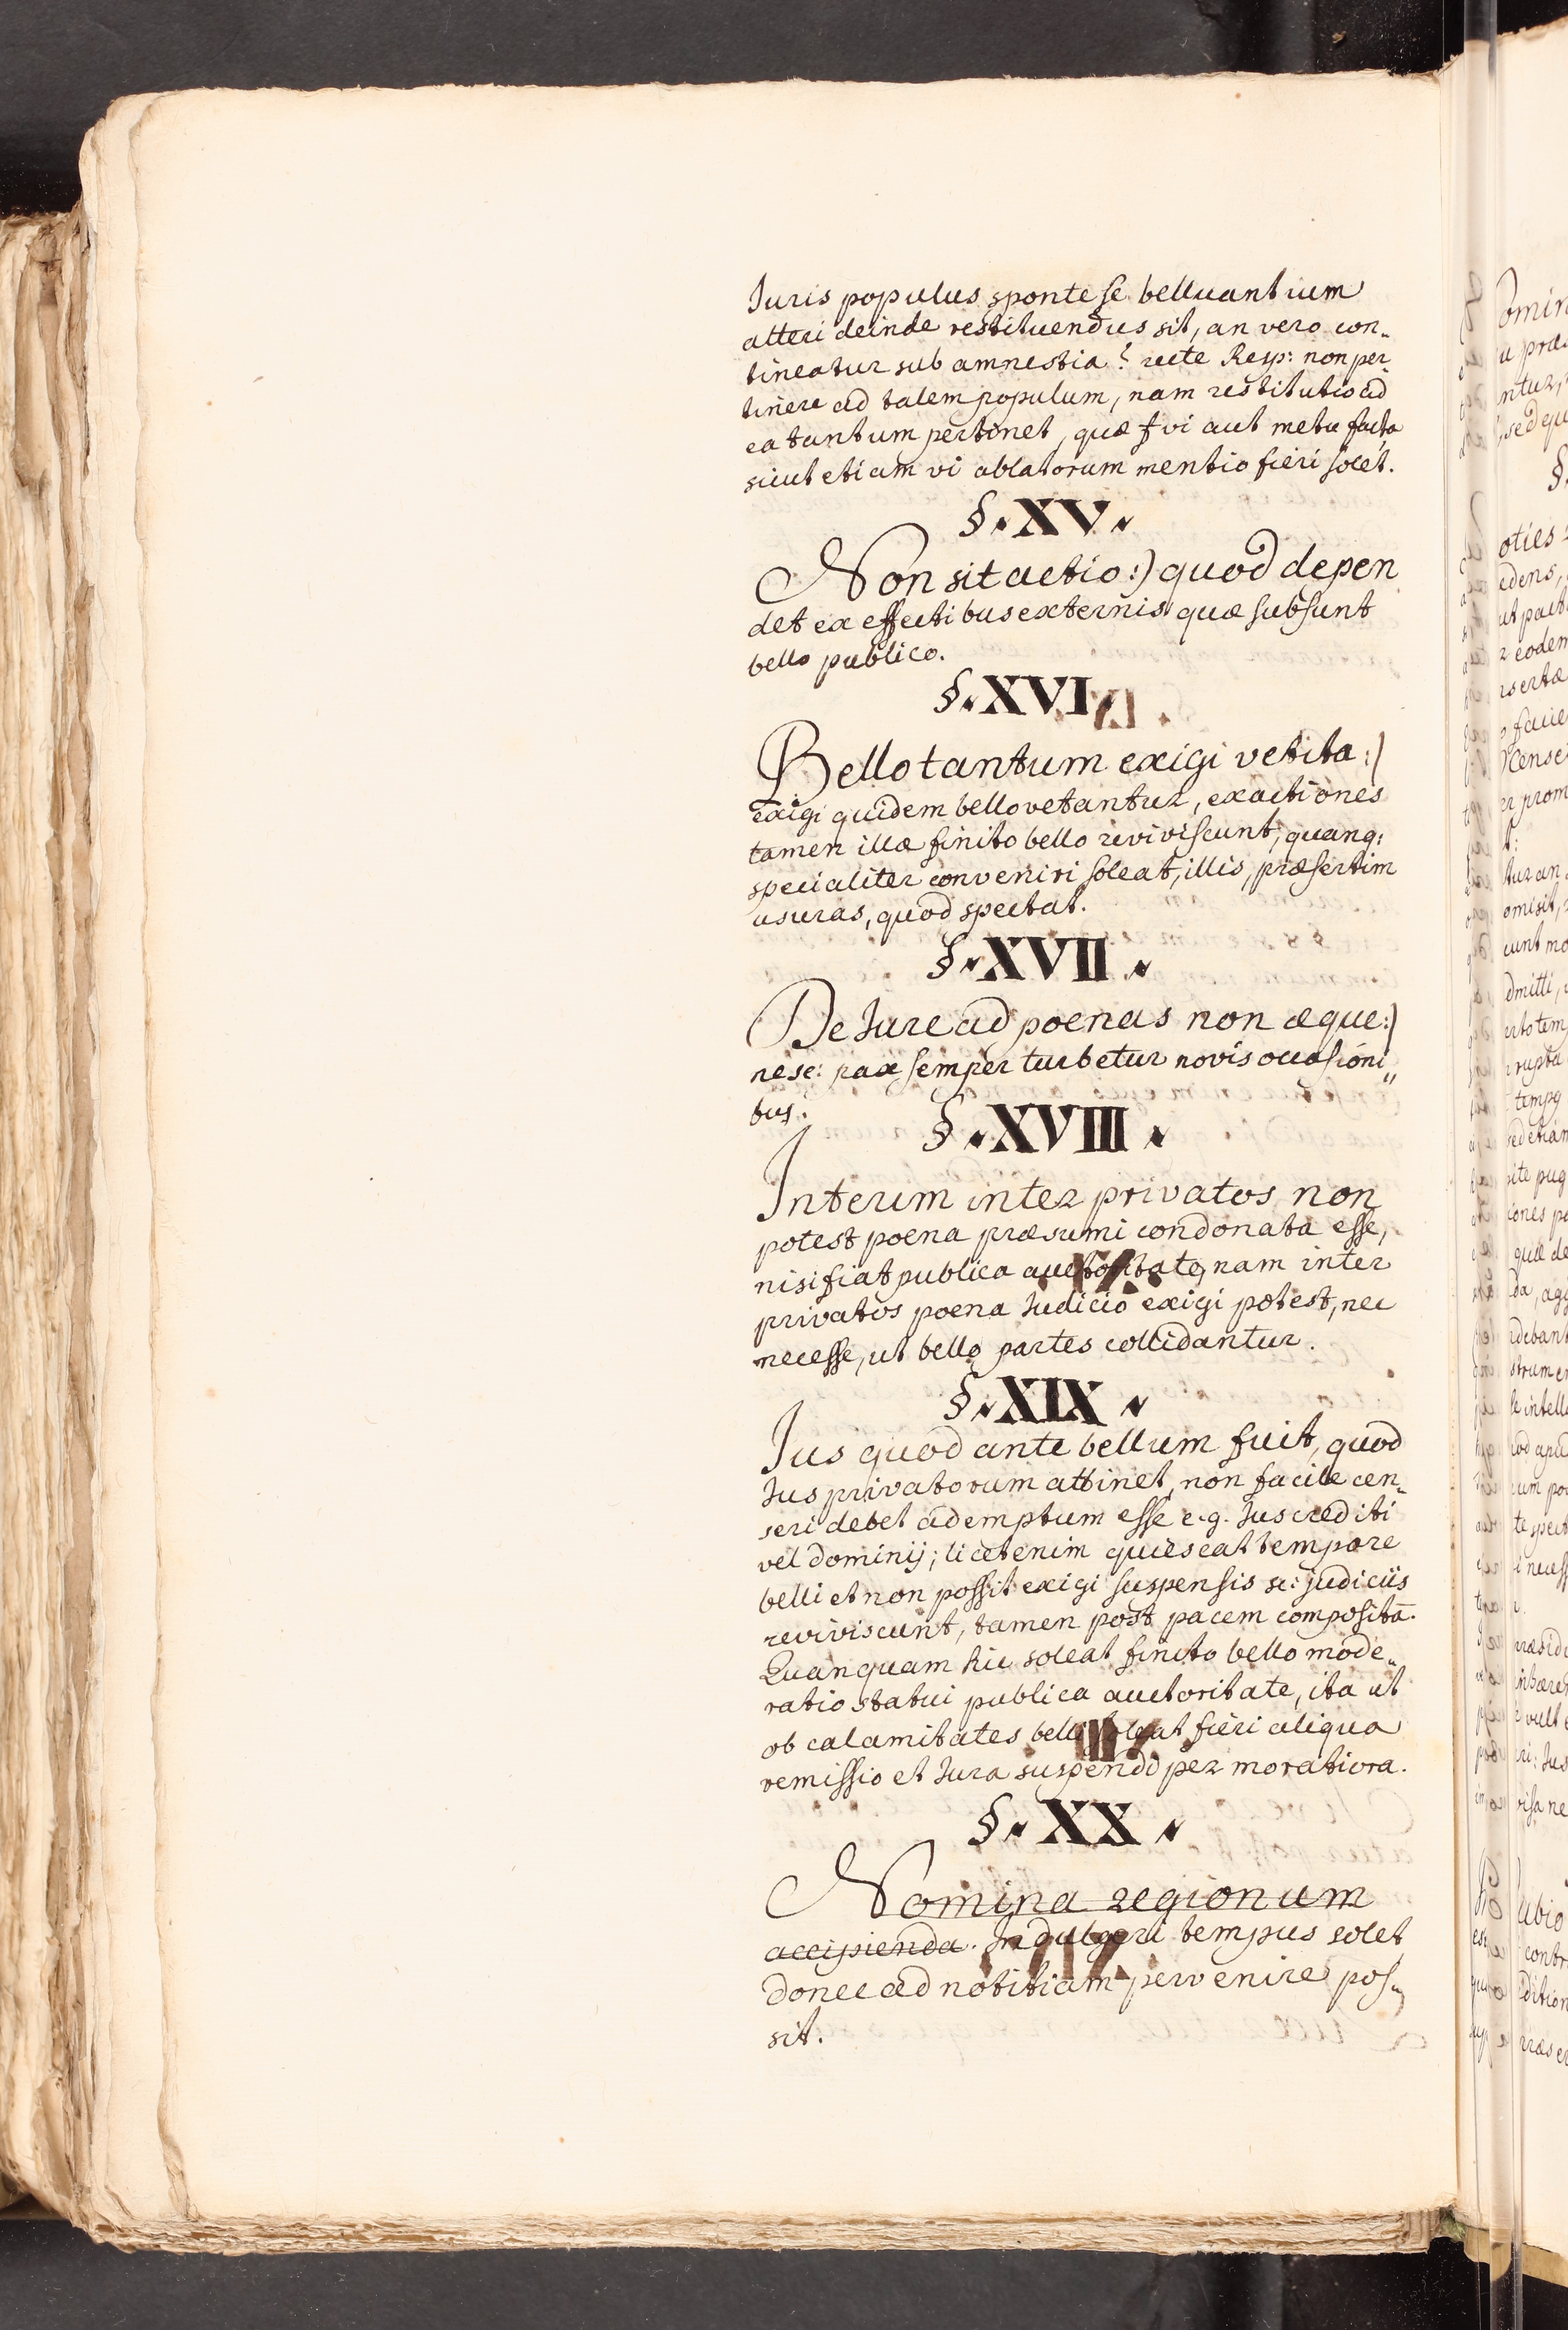 Juris populus sponte se belluantium
alteri deinde restituendus sit, an vero con„
tineatur sub amnestia? recte Resp: non per„
tinere ad talem populum, nam restitutio ad
ea tantum pertinet, quæ vi aut metu facta
sicut etiam vi ablatorum mentio fieri solet.
§. XV.
Non sit actio:) quod depen
det ex effectibus externis quæ subsunt
bello publico.
§. XVI.
Bello tantum exigi vetita:)
exigi quidem bello vetantur, exactiones
tamen illæ finito bello reviviscunt, quanq:
specialiter conveniri soleat, illis, præsertim
usuras, quod spectat.
§. XVII.
De Jure ad poenas non æque:)
ne sc: pax semper turbetur novis occasioni„
bus.
§. XVIII.
Interim inter privatos non
potest poena præsumi condonata esse,
nisi fiat publica auctoritate, nam inter
privatos poena Judicio exigi potest, nec
necesse, ut bello partes collidantur.
§. XIX.
Jus quod ante bellum fuit, quod
Jus privatorum attinet, non facile cen„
seri debet ademptum esse e.g. Jus crediti
vel dominij; licet enim quiescat tempore
belli et non possit exigi suspensis sc: judiciis
reviviscunt, tamen post pacem compositā.
Quanquam hic soleat finito bello mode„
ratio statui publica auctoritate, ita ut
ob calamitates belli soleat fieri aliqua
remissio et Jura suspendi per moratiora.
§. XX.
Nomina regionum
accipienda. Indulgeri tempus solet
donec ad notitiam pervenire pos„
sit.